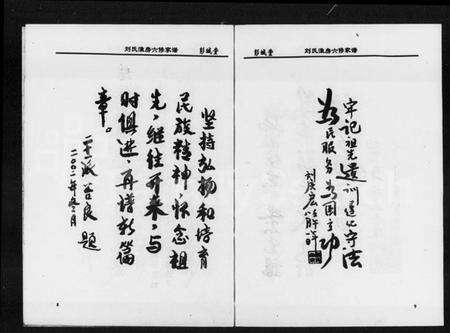 刘氏淮房六修家谱
彭城堂
坚持弘扬和培育
民族精神，怀念祖
先，继往开来，与
时俱进，再谱新篇
章。
善良 题
二〇〇一年
8
彭城堂
刘氏淮房六修家谱
牢记祖先遗训遵纪守法
为民服务为国立功
刘庆宏
9